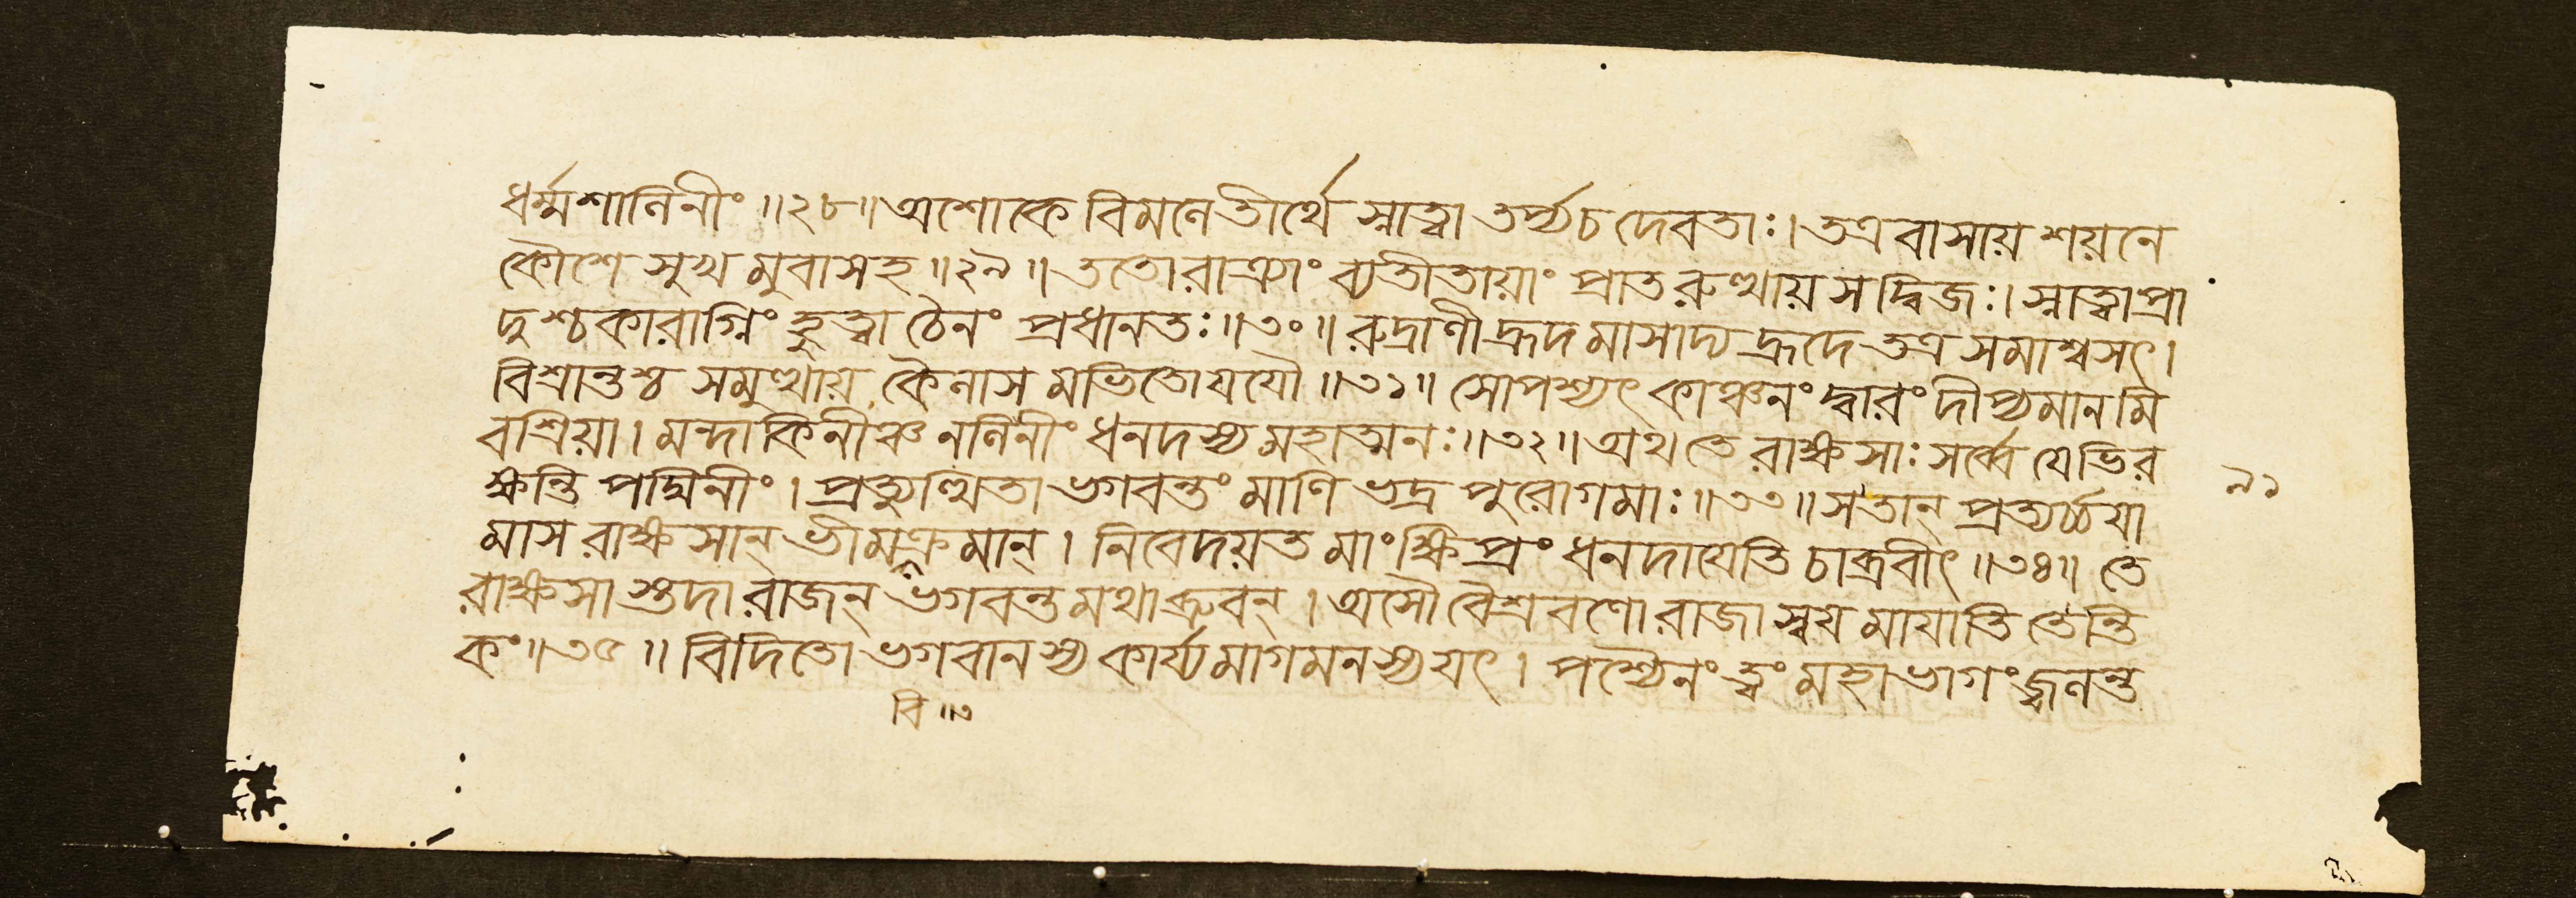 ধর্ম্মশালিনীং ॥২৮॥ অশোকে বিমলে তীর্থে স্নাত্বা তর্প্য চ দেবতাঃ। তত্র বাসায় শয়নে
কৌশে সুখ মুবাসহ ॥২৯॥ ততো রাত্র্যাং ব্যতীতায়াং প্রাতরুত্থায় সদ্বিজঃ। স্নাত্বা প্রা
দুশ্চকারাগ্নিং হুত্বা চৈনং প্রধানতঃ ॥৩০॥ রুদ্রাণীহ্রদ মাসাদ্য হ্রদে তত্র সমাশ্বসৎ।
বিশ্রান্তশ্চ সমুত্থায় কৈলাস মভিতো যযৌ ॥৩১॥ সোপশ্যৎ কাঞ্চনং দ্বারং দীপ্যমান মি
বশ্রিয়া। মন্দাকিনীঞ্চ নলিনীং ধনদস্য মহাত্মনঃ ॥৩২॥ অথ তে রাক্ষসাঃ সর্ব্বে যেভির
ক্ষন্তি পদ্মিনীং। প্রত্যুত্থিতা ভগবন্তং মাণিভদ্র পুরোগমাঃ ॥৩৩॥ স তান্ প্রত্যর্চয়া
মাস রাক্ষসান্ ভীমবিক্রমান্। নিবেদয়ত মাং ক্ষিপ্রং ধনদায়েতি চাব্রবীৎ ॥৩৪॥ তে
রাক্ষসা স্তদা রাজন্ ভগবন্ত মথাব্রুবন্। অসৌ বৈশ্রবণো রাজা স্বয় মায়াতি তেন্তি
কং ॥৩৫॥ বিদিতো ভগবানস্য কার্য্যমাগমনস্য যৎ। পশ্যৈনং ত্বং মহাভাগং জ্বলন্ত
বি ॥৩
৯১